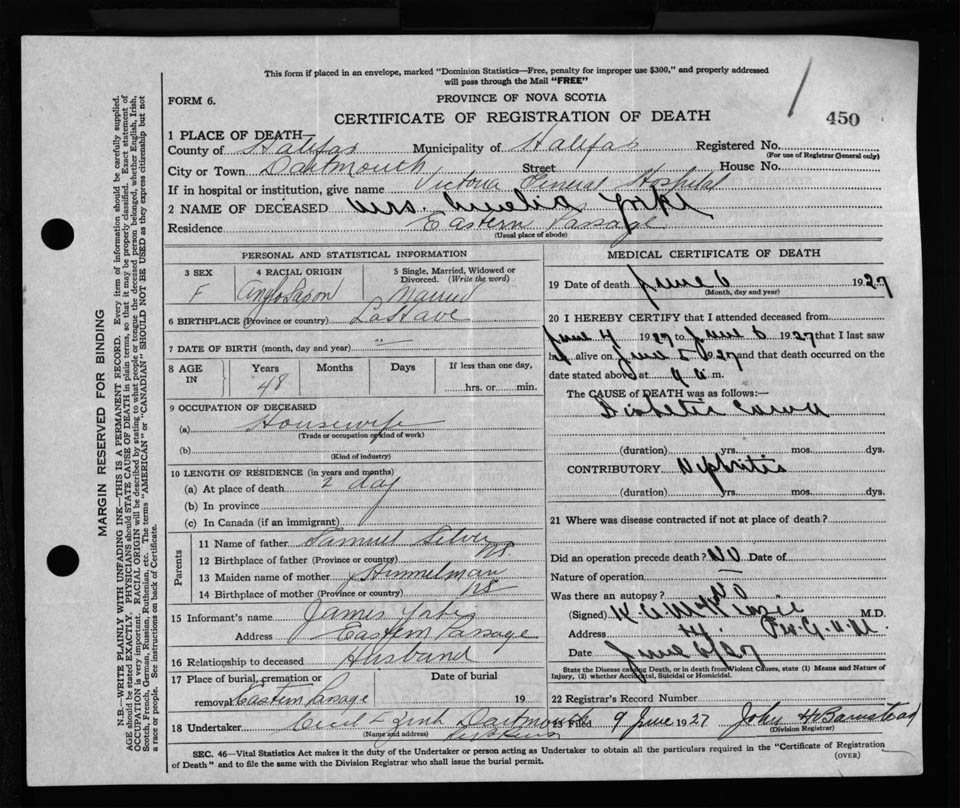 This form if placed in an envelope, marked “Dominion Statistics—Free, penalty for improper use $300,” and properly addressed
will pass through the Mail “FREE”
FORM 6.
PROVINCE OF NOVA SCOTIA
CERTIFICATE OF REGISTRATION OF DEATH
450
1 PLACE OF DEATH—
County of Halifax Municipality of Halifax Registered No.
(For use of Registrar General only)
City or Town Dartmouth Street House No.
If in hospital or institution, give name Victoria General Hospital
2 NAME OF DECEASED Mrs. Amelia Yorke
Residence Eastern Passage
(Usual place of abode)
PERSONAL AND STATISTICAL INFORMATION
3 SEX
F
4 RACIAL ORIGIN
Anglo Saxon
5 Single, Married, Widowed or
Divorced. (Write the word)
Married
6 BIRTHPLACE (Province or country) LaHave
7 DATE OF BIRTH (month, day and year) "
8 AGE IN
Years Months Days If less than one day,
48
hrs. or min.
9 OCCUPATION OF DECEASED
(a) Housewife
(Trade or occupation or kind of work)
(b)
(Kind of industry)
10 LENGTH OF RESIDENCE (in years and months)
(a) At place of death 2 day
(b) In province
(c) In Canada (if an immigrant)
Parents
11 Name of father Samuel Silver
12 Birthplace of father (Province or country) NS.
13 Maiden name of mother Himmelman
14 Birthplace of mother (Province or country) NS
15 Informant's name James Yorke
Address Eastern Passage
16 Relationship to deceased Husband
17 Place of burial, cremation or Date of burial
removal Eastern Passage 19
18 Undertaker Cecil E Zink Dartmouth
(Name and address)
MEDICAL CERTIFICATE OF DEATH
19 Date of death June 6 1927
(Month, day and year)
20 I HEREBY CERTIFY that I attended deceased from
June 4 1927 to June 6 1927 that I last saw
h alive on June 5 1927 and that death occurred on
date stated above at 9 a.m.
The CAUSE OF DEATH was as follows:—
Diabetic Coma
(duration) yrs. mos. dys.
CONTRIBUTORY Nephritis
(duration) yrs. mos. dys.
21 Where was disease contracted if not at place of death?
Did an operation precede death? NO Date of
Nature of operation
Was there an autopsy? NO
(Signed) M.D.
Address
Date June 6/27
State the Disease causing Death, or in death from Violent Causes, state (1) Means and Nature of
Injury, (2) whether Accidental, Suicidal or Homicidal.
22 Registrar's Record Number
9 June 1927 John H Barnstead
(Division Registrar)
SEC. 46—Vital Statistics Act makes it the duty of the Undertaker or person acting as Undertaker to obtain all the particulars required in the “Certificate of Registration
of Death” and to file the same with the Division Registrar who shall issue the burial permit.
(OVER)
MARGIN RESERVED FOR BINDING
N.B.—WRITE PLAINLY WITH UNFADING INK—THIS IS A PERMANENT RECORD. Every item of information should be carefully supplied.
AGE should be stated EXACTLY. PHYSICIANS should STATE CAUSE OF DEATH in plain terms, so that it may be properly classified. Exact statement of
OCCUPATION is very important. RACIAL ORIGIN will be described by stating to what people or tongue the deceased person belonged, whether English, Irish,
Scotch, French, German, Russian, Ruthenian, etc. The terms “AMERICAN” or “CANADIAN” SHOULD NOT BE USED as they express citizenship but not
a race or people. See instructions on back of Certificate.